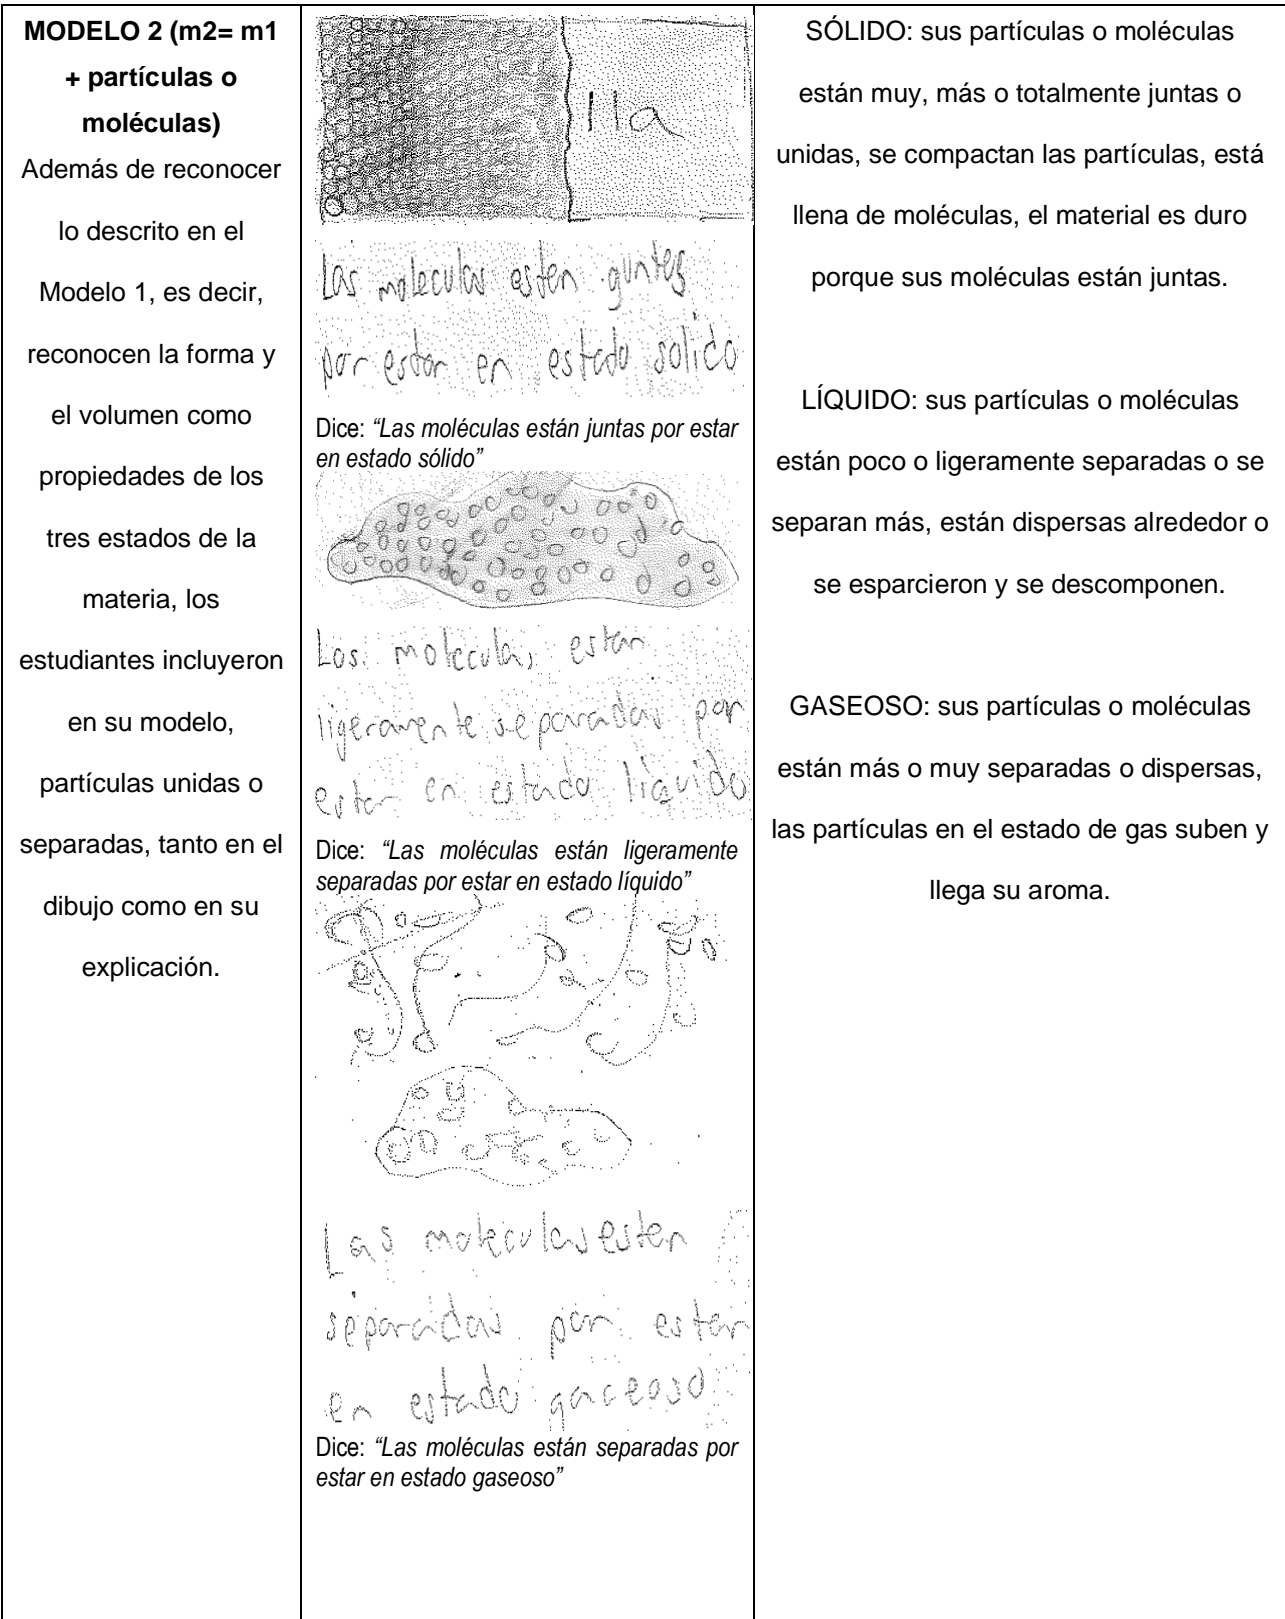 MODELO 2 (m2= m1
+ partículas o
moléculas)
Además de reconocer
lo descrito en el
Modelo 1, es decir,
reconocen la forma y
el volumen como
propiedades de los
tres estados de la
materia, los
estudiantes incluyeron
en su modelo,
partículas unidas o
separadas, tanto en el
dibujo como en su
explicación.
lla
Las moleculas esten guntes
por estar en estado solido
Dice: “Las moléculas están juntas por estar
en estado sólido”
Las moleculas estan
ligeramente separadas por
estar en estado líquido
Dice: “Las moléculas están ligeramente
separadas por estar en estado líquido”
Las moleculas esten
separadas por estar
en estado gaceoso
Dice: “Las moléculas están separadas por
estar en estado gaseoso”
SÓLIDO: sus partículas o moléculas
están muy, más o totalmente juntas o
unidas, se compactan las partículas, está
llena de moléculas, el material es duro
porque sus moléculas están juntas.
LÍQUIDO: sus partículas o moléculas
están poco o ligeramente separadas o se
separan más, están dispersas alrededor o
se esparcieron y se descomponen.
GASEOSO: sus partículas o moléculas
están más o muy separadas o dispersas,
las partículas en el estado de gas suben y
llega su aroma.